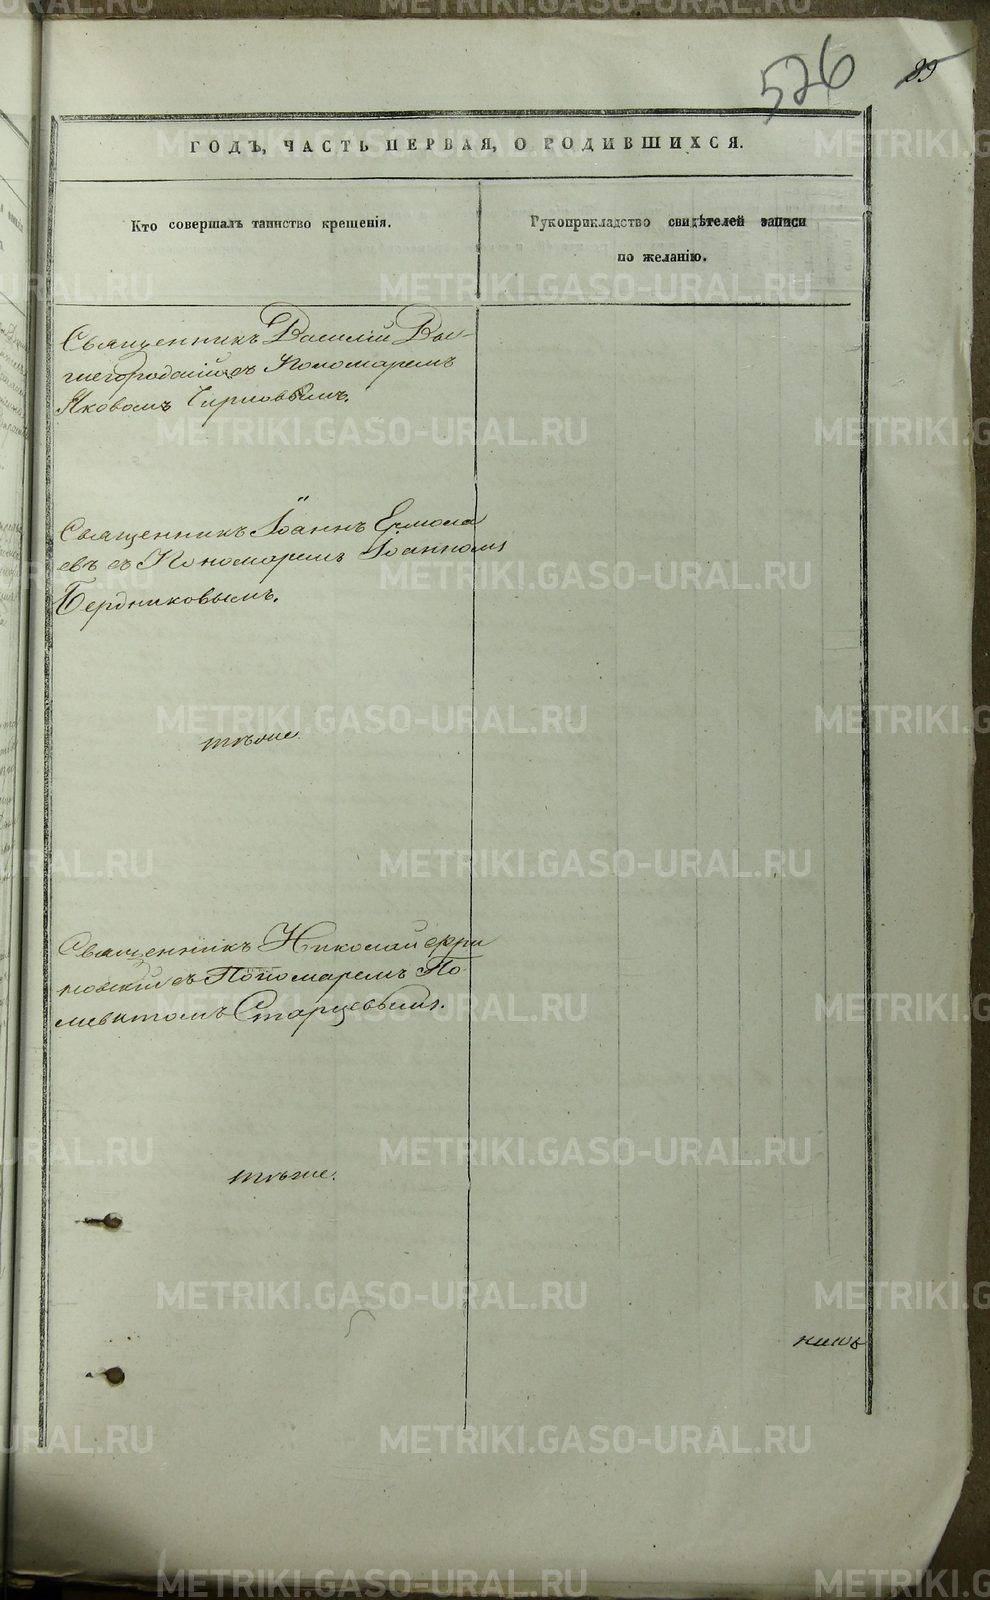 526
89
ГОДЪ, ЧАСТЬ ПЕРВАЯ, О РОДИВШИХСЯ.
Кто совершалъ таинство крещенія.
Рукоприкладство свидѣтелей записи
по желанію.
Священникъ Василій Вы-
шегородскій съ Пономаремъ
Яковомъ Чирковымъ.
Священникъ Іоаннъ Ермола
евъ съ Пономаремъ Іоанномъ
Бердниковымъ.
тѣже.
Священникъ Николай
новскій съ Пономаремъ По-
лиевктомъ Старцевымъ.
тѣже.
METRIKI.GASO-URAL.RU